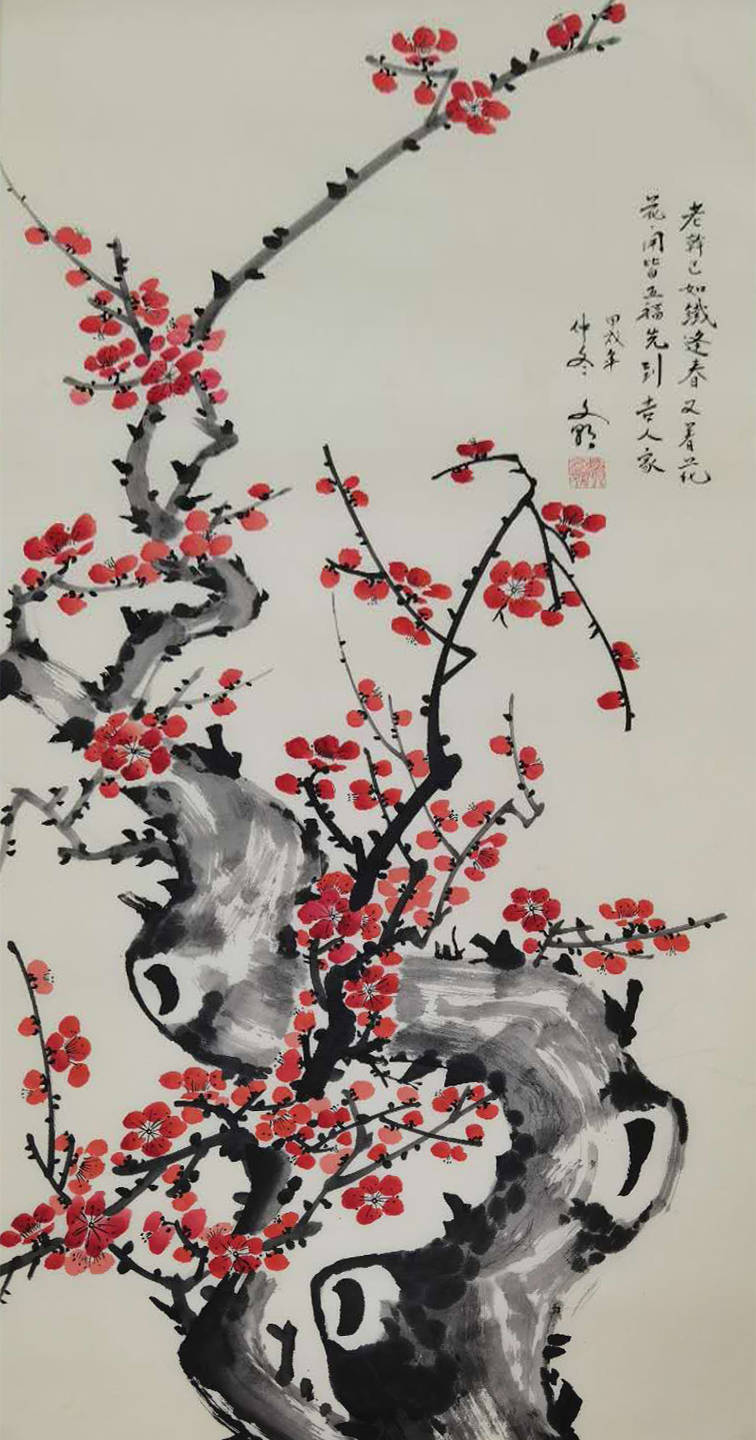 老幹已如鐵逢春又著花
花開皆五福先到吉人家
甲戌年
仲冬 文野